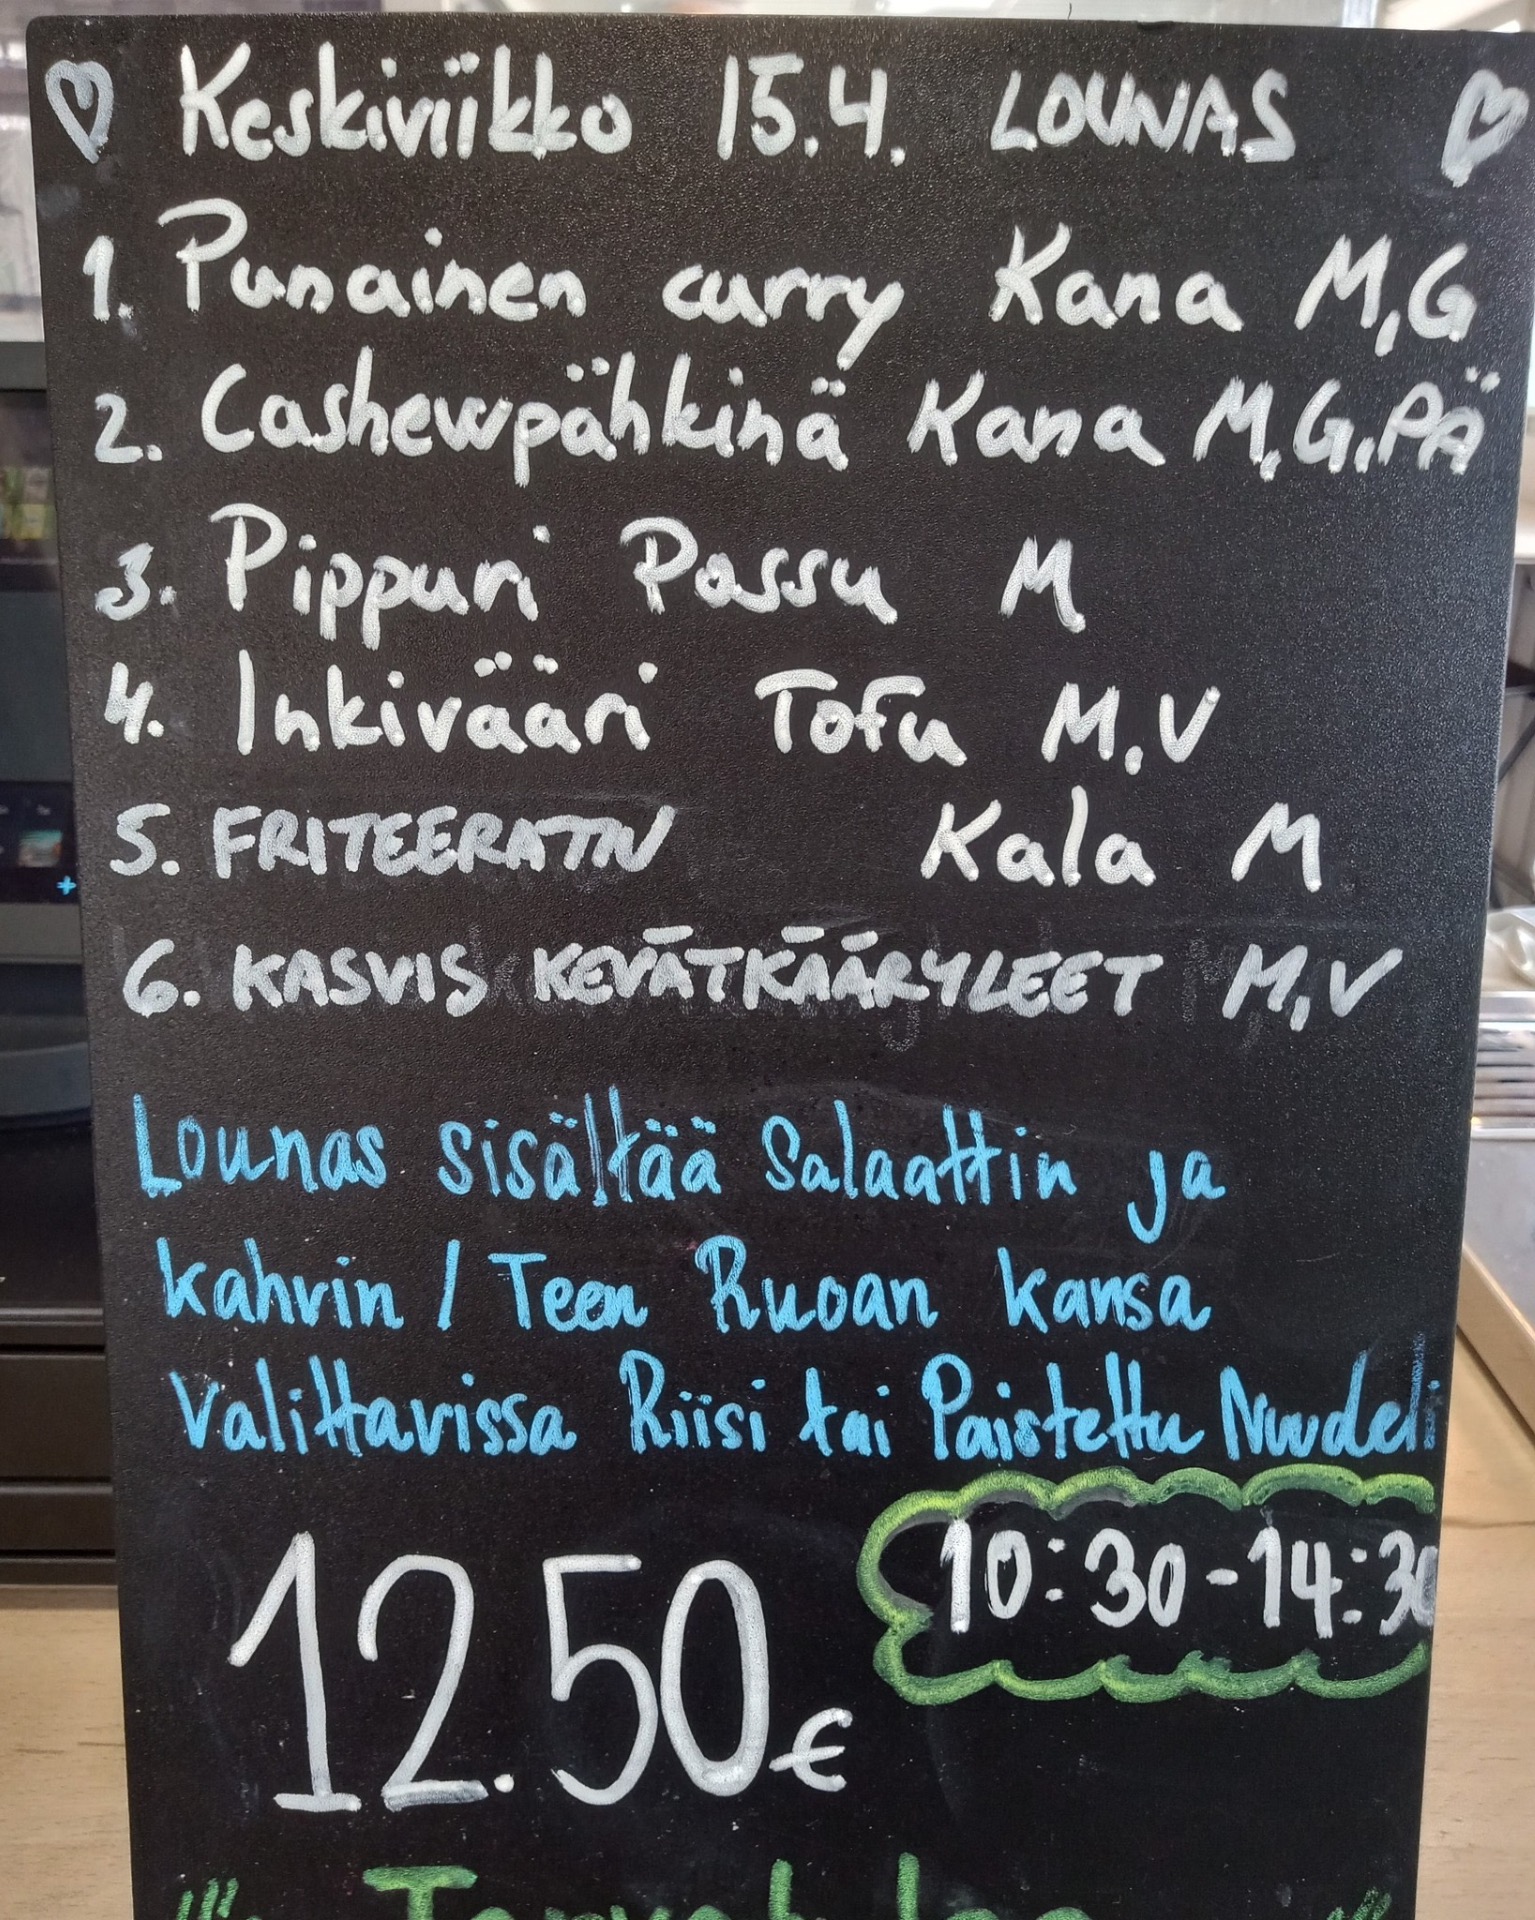 Keskiviikko 15.4. LOUNAS
1. Punainen curry Kana M,G
2. Cashewpähkinä Kana M,G,PÄ
3. Pippuri Possu M
4. Inkivääri Tofu M,V
5. FRITEERATTU Kala M
6. KASVIS KEVÄTKÄÄRYLEET M,V
Lounas sisältää Salaattin ja
kahvin / Teen Ruoan kansa
Valittavissa Riisi tai Paistettu Nuudeli
10:30-14:30
12.50€